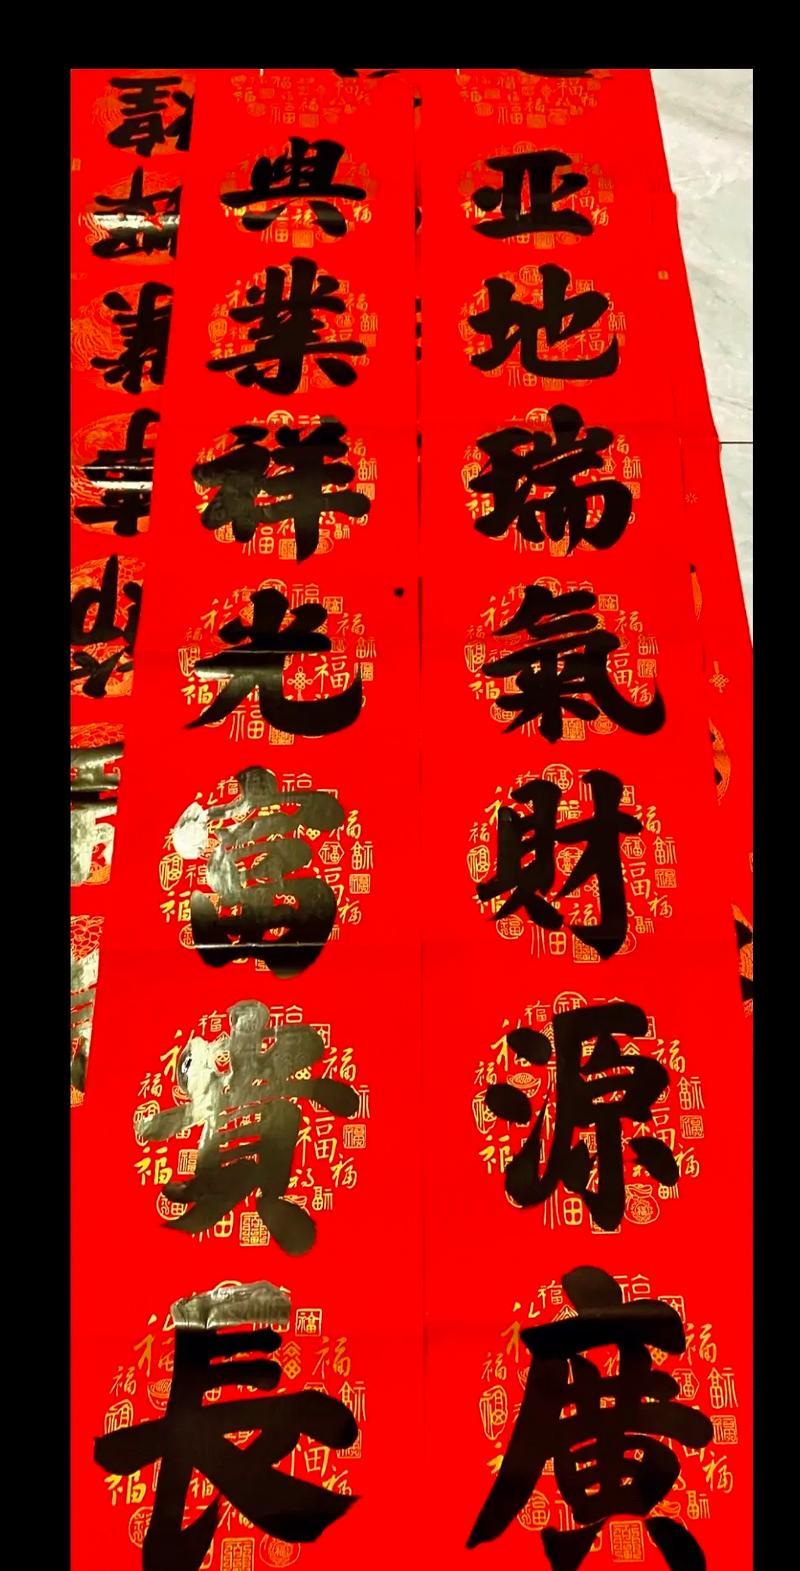 亚地瑞氣財源廣
興業祥光富貴長